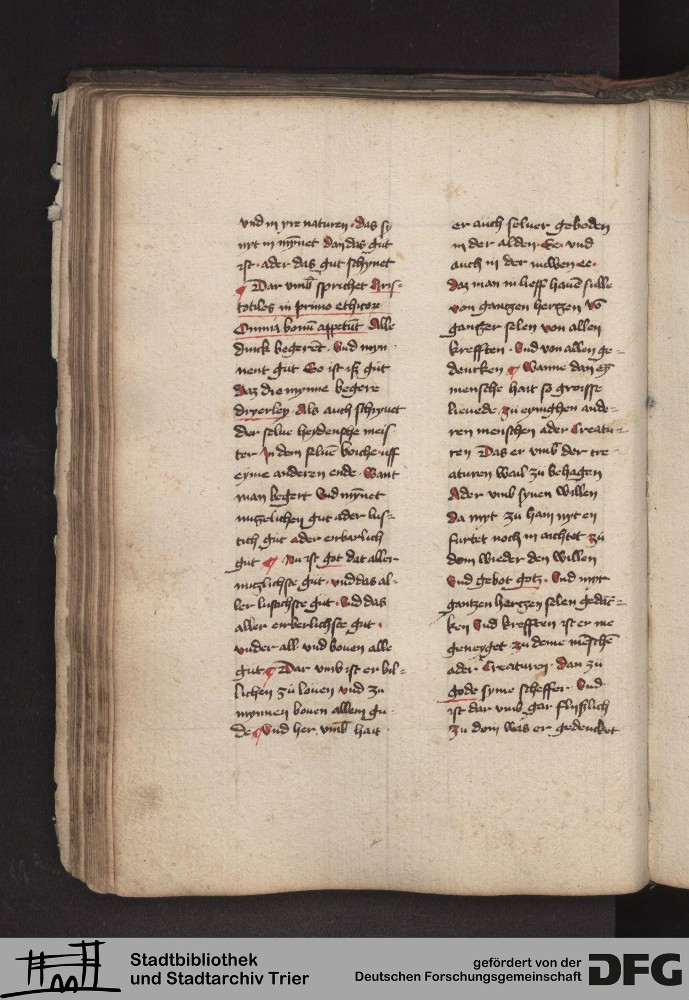 vnd in yre naturen · das sy
nyt in mȳnet Dan das gut
ist · ader das gut schynet
¶ Dar vmb̄ sprichet Aris-
totiles in primo ethicor
Omnia bonū appetūt Alle
dinck begerēt · Vnd myn
nent gut So ist iß gut
Daz die mynne begere
dryerley · Als auch schrynet
der selue heydensche meis
ter In dem seluē boiche uff
eyme anderen ende · Want
man begert Vnd mȳnet
nutzelichen gut ader lus-
tich gut ader erbarlich
gut ¶ · Nu ist got dat aller
nutzlichste gut · vnd das al-
ler lustichste gut · Vnd das
aller erberlichste gut ·
vnder all vnd bouen alle
gut · ¶ Dar vmb ist er bil-
lichen zů louen vnd zu
mynnen bouen allem gu
de ¶ Vnd her vmb̄ hait
er auch seluer geboden
in der alden · Ee · vnd
auch in der nuwen · ee ·
daz man in lieff hauē sulle
von gantzen hertzen võ
gantzer selen von allen
krefften · Vnd von allen ge-
dencken ¶ Wanne dan eȳ
mensche hait so groisse
lieuede zů eynighen ande-
ren menschen ader Creatu-
ren Das er vmb̄ der cre
aturen wail zů behagen
Ader vmb synen willen
da myt zů hain nyt en
furtet noch in aichtet zů
dom wieder den willen
Vnd gebot gotz · Vnd myt
gantzen hertzen selen gedāc-
ken Vnd krefften ist er me
geneyget zů deme mēschē
ader Creaturen · dan zů
gode syme scheffer · Vnd
ist dar vmb gar flyßlich
zů dom was er gedencket
Stadtbibliothek
und Stadtarchiv Trier
gefördert von der
Deutschen Forschungsgemeinschaft
DFG